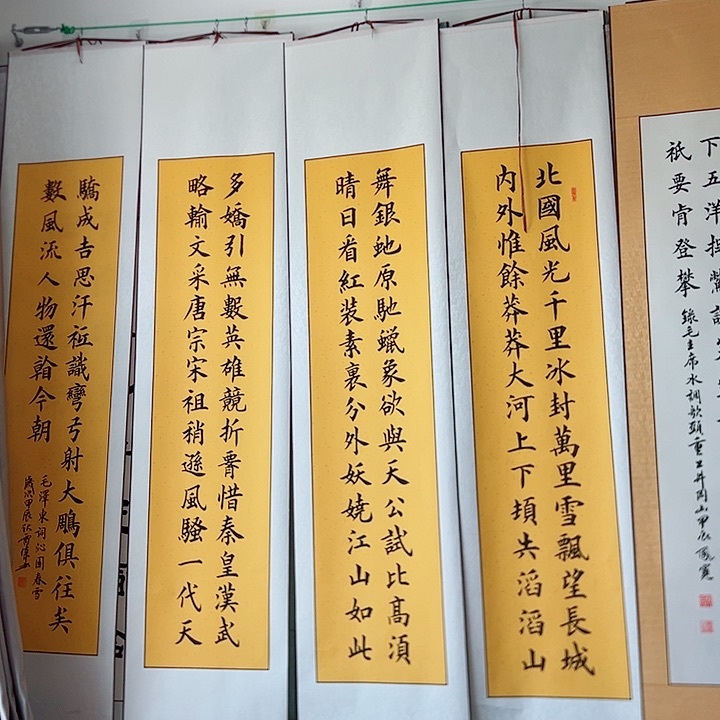 下五洋捉鱉談笑
祇要肯登攀
錄毛主席水調歌頭重上井岡山甲辰
北國風光千里冰封萬里雪飄望長城
內外惟餘莽莽大河上下頓失滔滔山
舞銀虵原馳蠟象欲與天公試比髙須
晴日看紅裝素裹分外妖嬈江山如此
多嬌引無數英雄競折腰惜秦皇漢武
略輸文采唐宗宋祖稍遜風騷一代天
驕成吉思汗祗識彎弓射大鵰俱往矣
數風流人物還看今朝
毛澤東詞沁園春雪
歲次甲辰秋